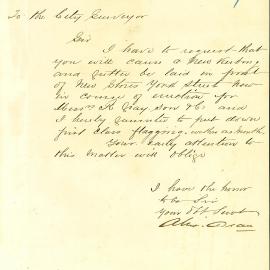 To the City Surveyor
Sir
I have to request that
you will cause a New Kerbing
and Gutter be laid in front
of New Stores York Street now
in course of erection for
Messrs Kay Son & Co and
I hereby to put down
first class flagging, within a month.
Your early attention to
this matter will oblige
I have the honor
to be Sir
Your Obt Servt
Alex. Dean